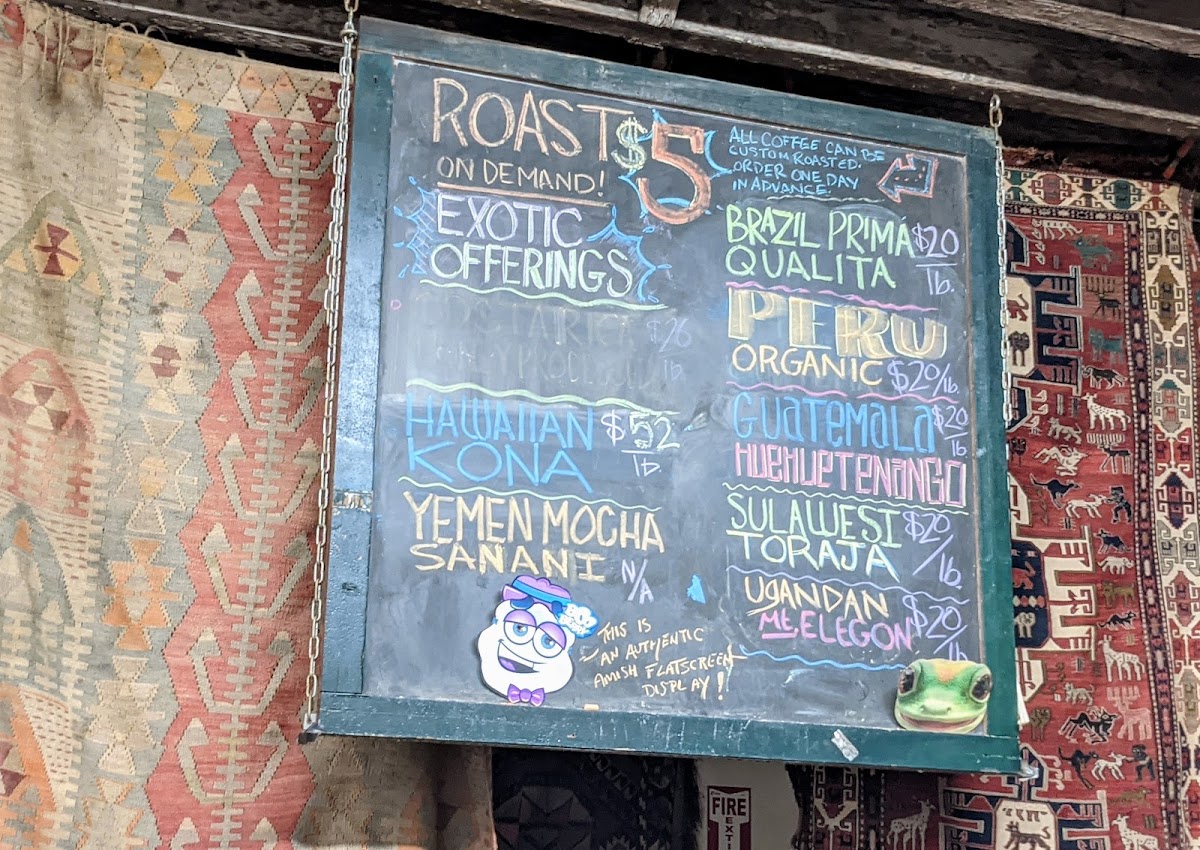 ROAST $5
ON DEMAND!
ALL COFFEE CAN BE
CUSTOM ROASTED.
ORDER ONE DAY
IN ADVANCE.
EXOTIC
OFFERINGS
COSTA RICA $26
HONEY PROCESSED lb.
HAWAIIAN $52
KONA lb.
YEMEN MOCHA
SANANI N/A
THIS IS
AN AUTHENTIC
AMISH FLATSCREEN
DISPLAY!
BRAZIL PRIMA $20
QUALITA lb.
PERU
ORGANIC $20/lb.
GUATEMALA $20
HUEHUETENANGO lb.
SULAWESI $20/
TORAJA lb.
UGANDAN $20/
Mt. ELEGON lb.
FIRE